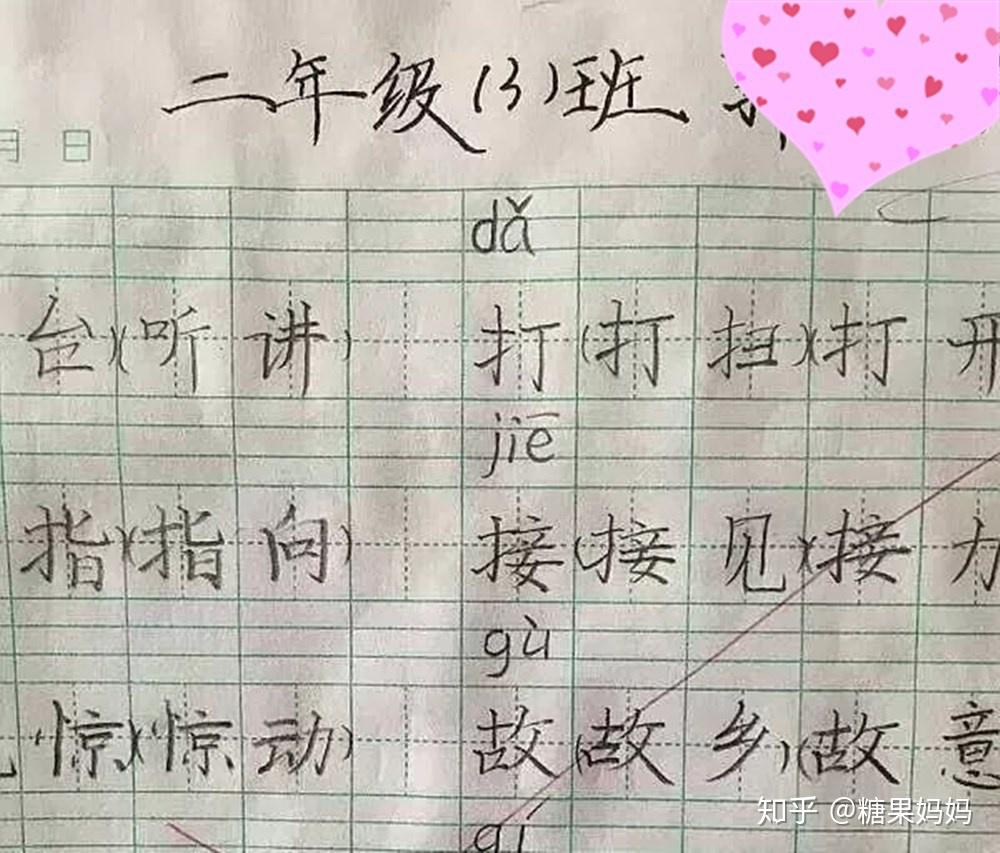 二年级(3)班
月 日
dǎ
台)(听讲) 打(打扫)(打开
jiē
指)(指向) 接(接见)(接力
gù
惊)(惊动) 故(故乡)(故意
知乎 @糖果妈妈